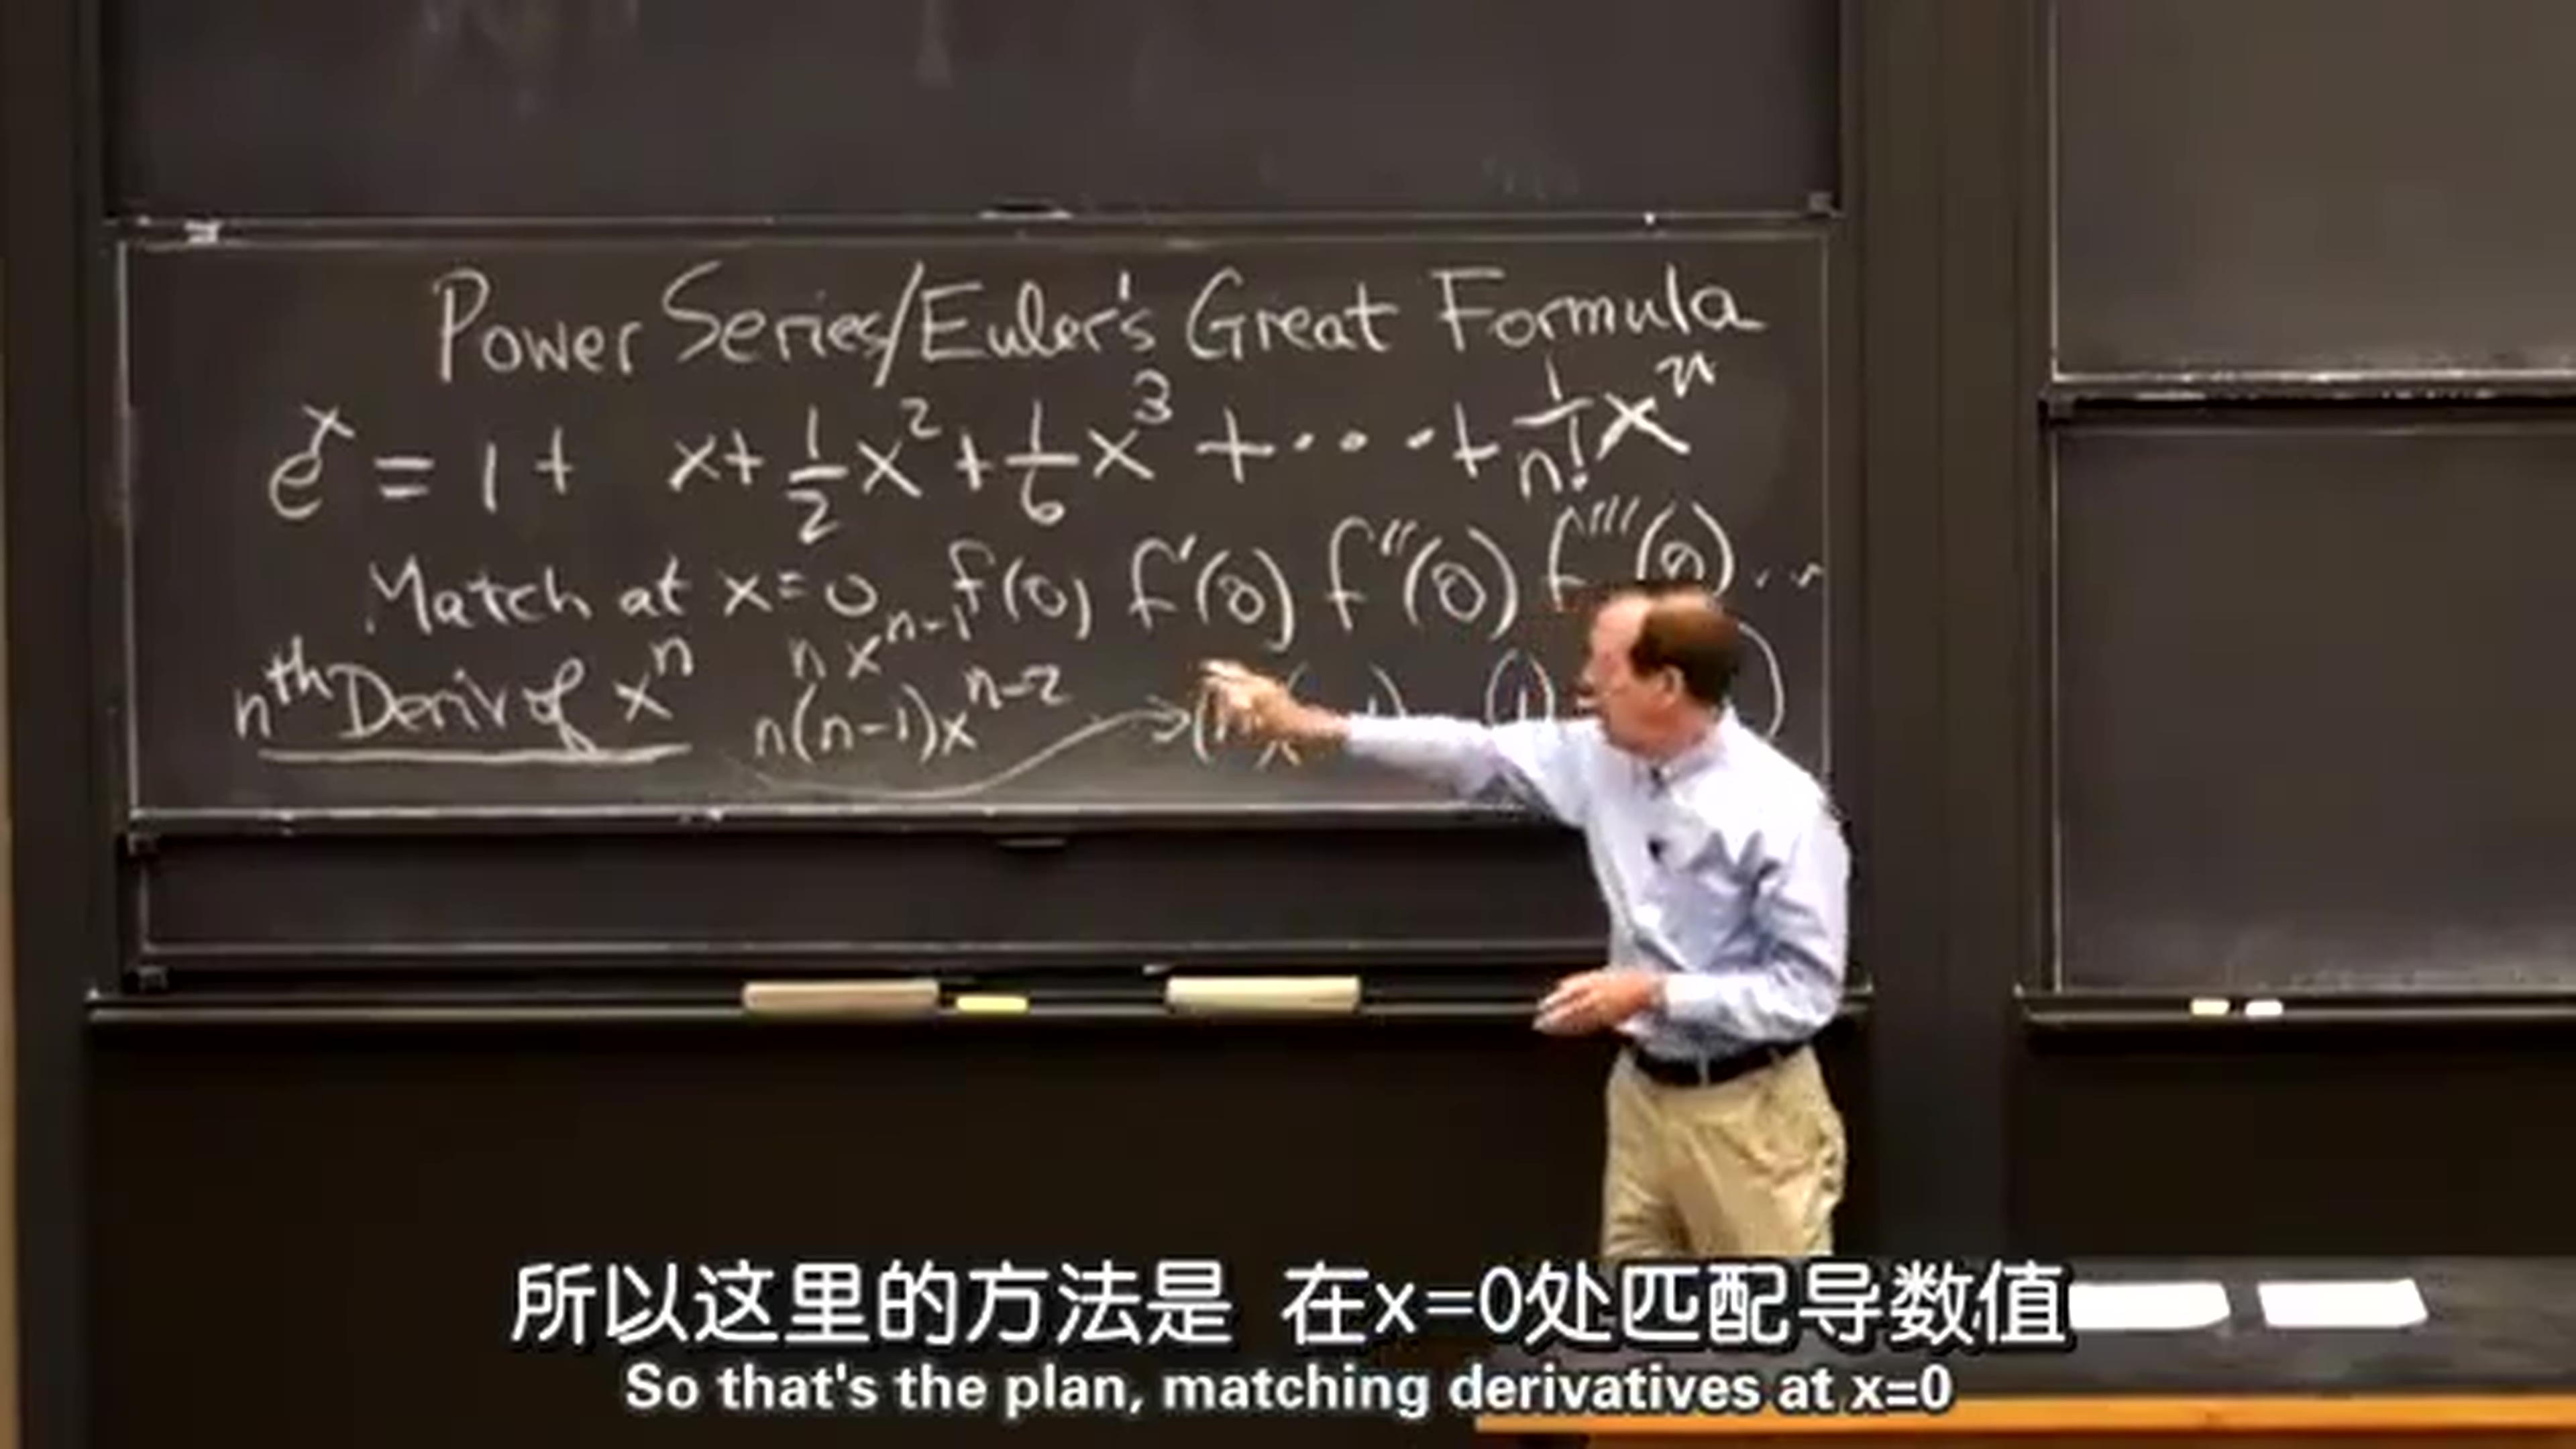 Power Series/Euler's Great Formula
eˣ = 1 + x + 1/2 x² + 1/6 x³ + ··· + 1/n! xⁿ
Match at x=0 f(0) f'(0) f''(0) f'''(0)...
nᵗʰ Deriv of xⁿ nxⁿ⁻¹
n(n-1)xⁿ⁻²
所以这里的方法是 在x=0处匹配导数值
So that's the plan, matching derivatives at x=0